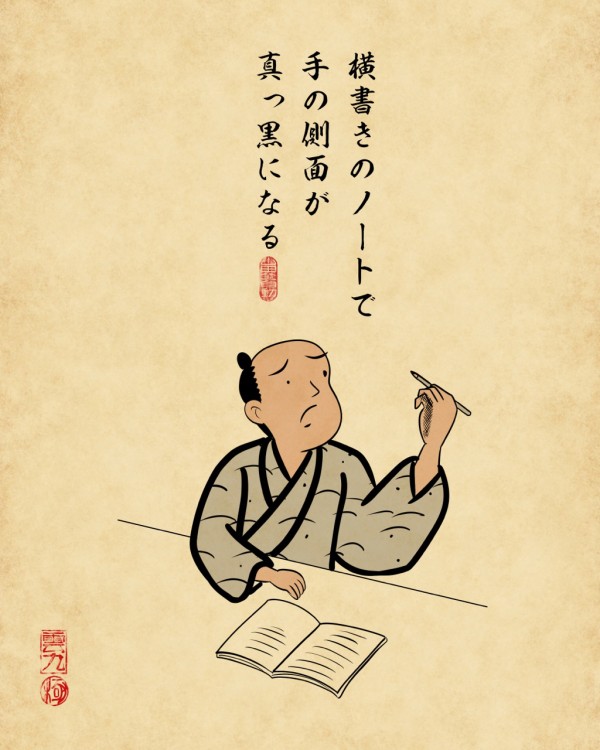 横書きのノートで
手の側面が
真っ黒になる